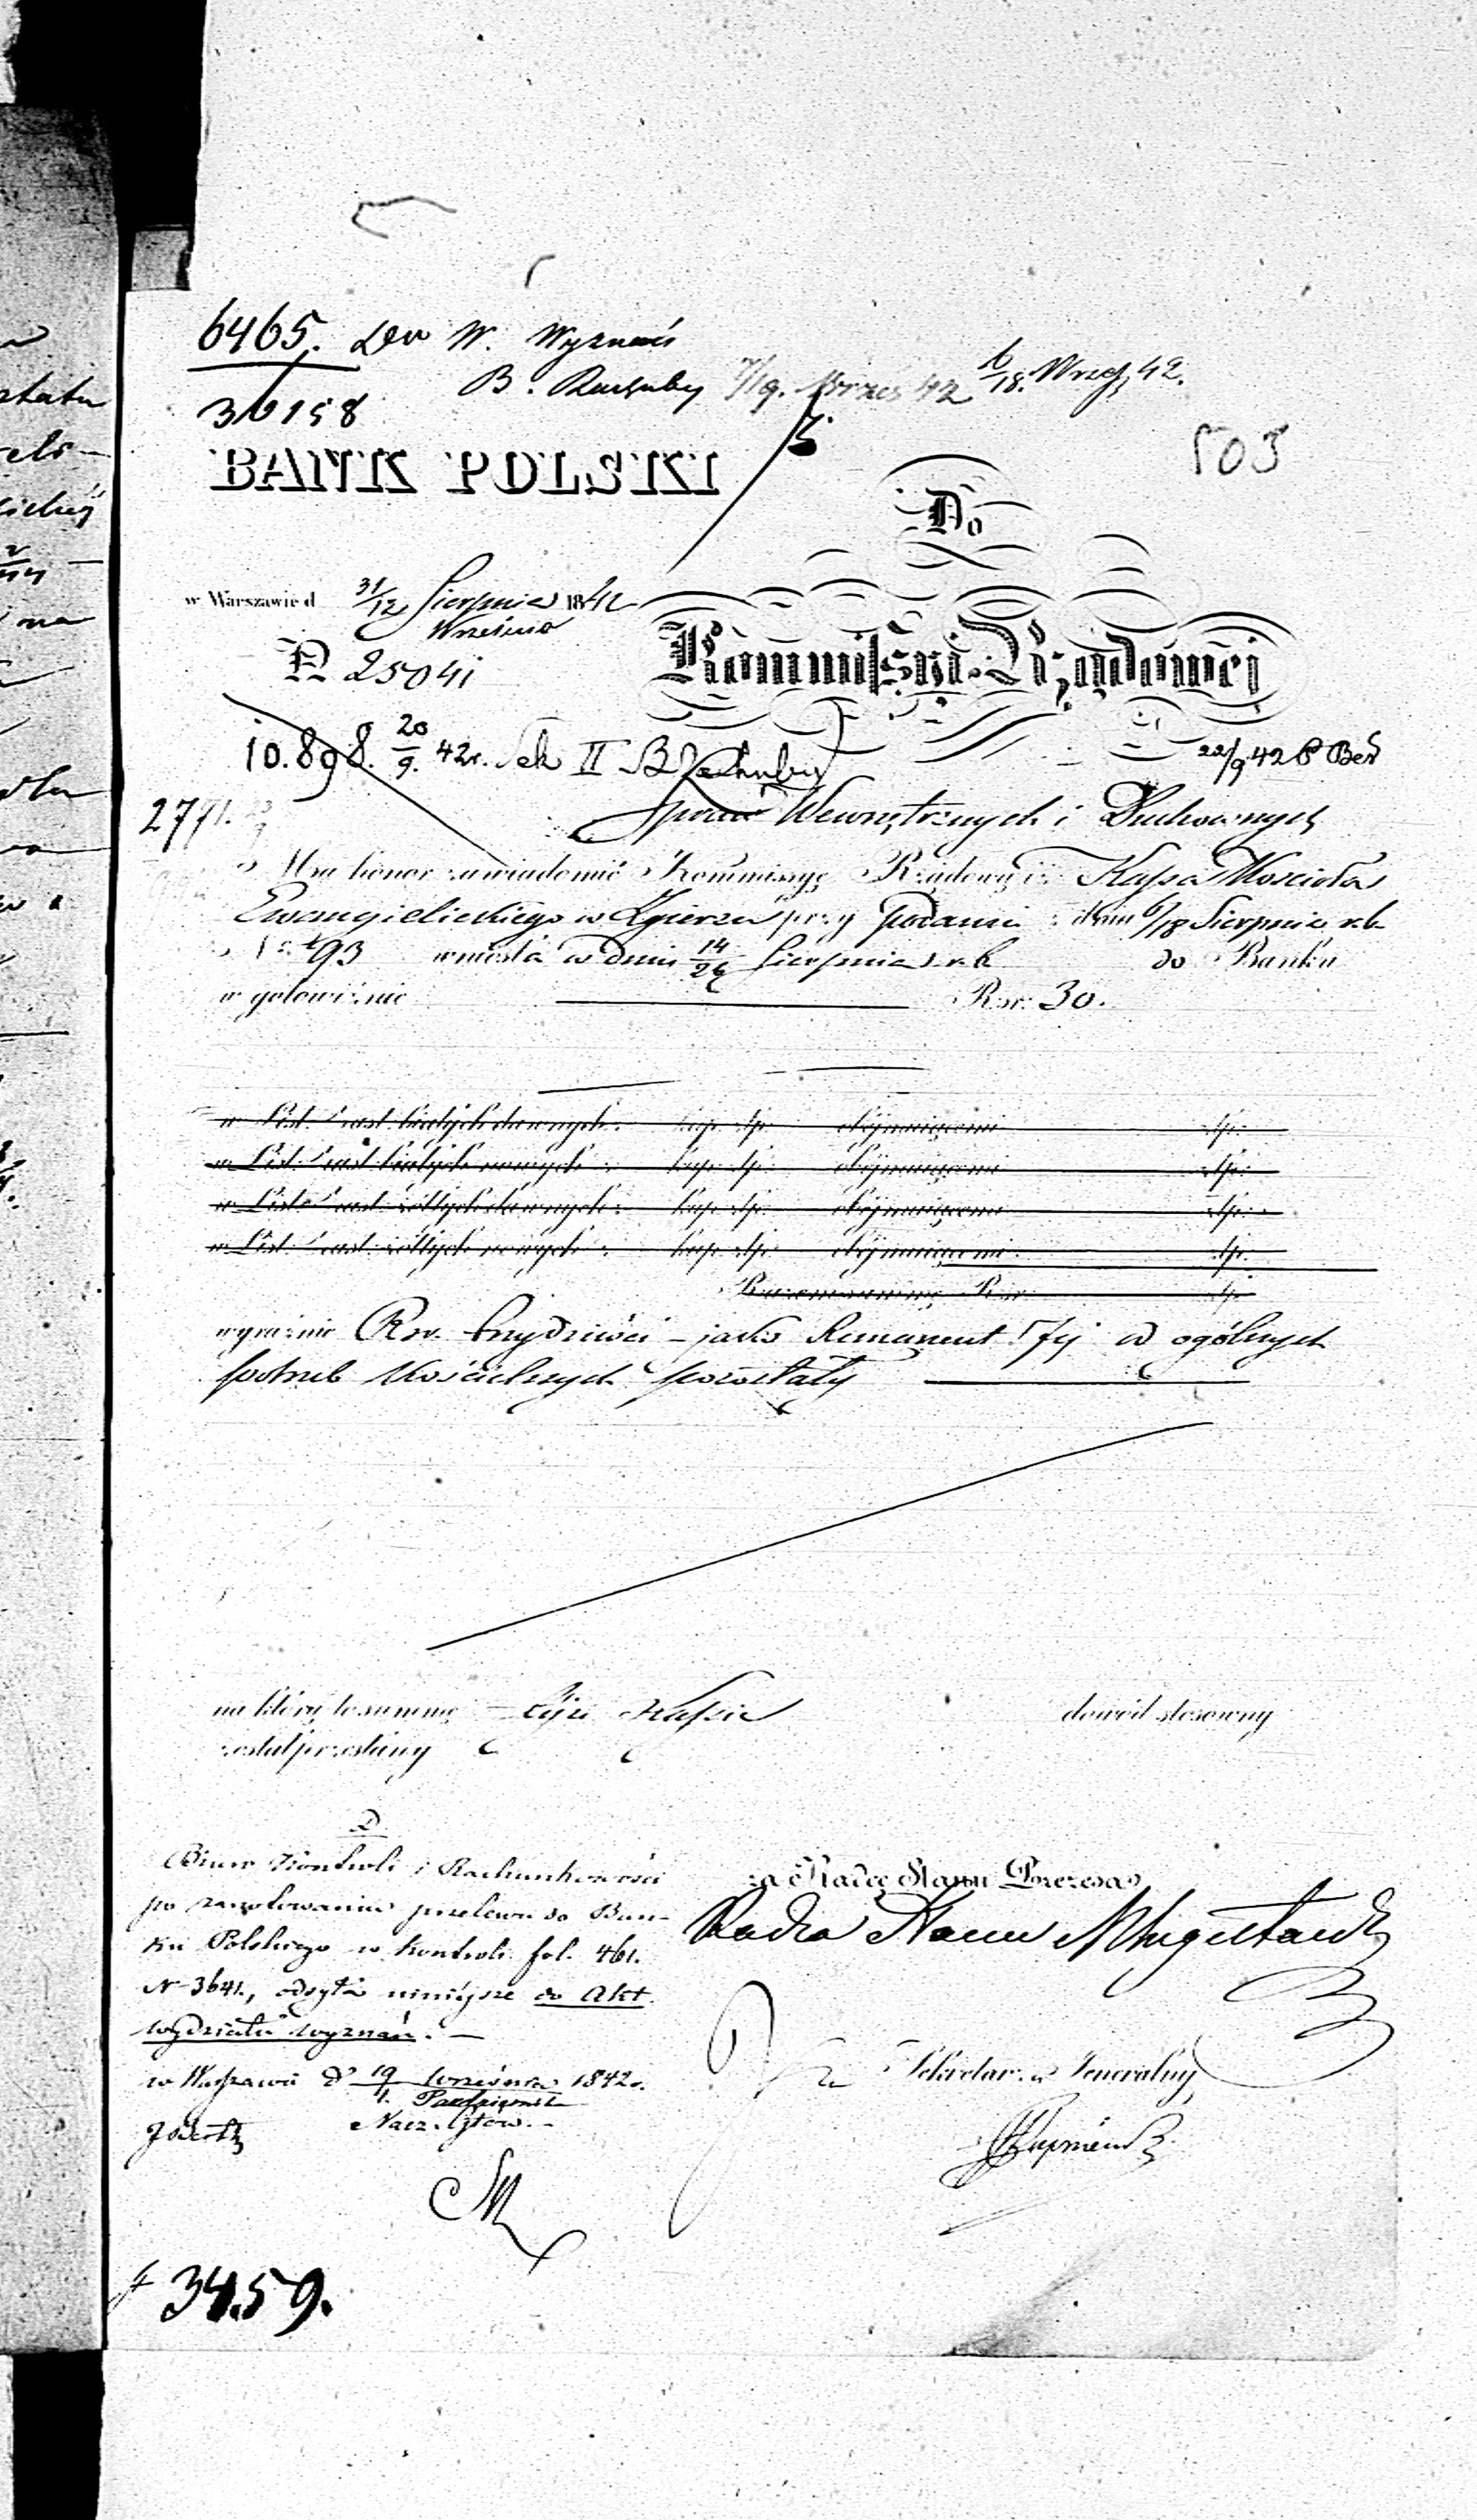 6465. W. Wyznań
B. Rachuby 7/19. Wrześ 42 6/18. Wrześ. 42.
503
BANK POLSKI
Do
w Warszawie d 31/12 Sierpnia 1842
Września
N 25041
Kommissyi Rządowéj
10.898. 20/9. 42r. Sek II B Rachuby
22/9 42
2791.
Spraw Wewnętrznych i Duchownych
Ma honor zawiadomić Kommissyę Rządową iż Kassa Kościoła
Ewangielickiego w Zgierzu przy podaniu z dnia 6/18 Sierpnia r.b.
93 wniosła w dniu 14/26 Sierpnia r.b. do Banku
w gotowiźnie Rsr. 30.
w List. Zast. białych dawnych: kup. złp. obejmującemi złp.
w List. Zast. białych nowych: kup. złp. obejmującemi złp.
w List. Zast. żółtych dawnych: kup. złp. obejmującemi złp.
w List. Zast. żółtych nowych: kup. złp. obejmującemi złp.
Razem summę Rsr. złp.
wyraźnie Rsr. trzydzieści – jako Remanent z ogólnych
potrzeb Kościelnych pozostały
na którą to summę téjże Kassie dowód stosowny
został przesłany
Biuro Kontroli i Rachunkowości
po zanotowaniu przelewu do Ban-
ku Polskiego w Kontroli fol. 461.
N 3641., odsyła niniejsze do Akt
Wydziału Wyznań. —
w Warszawie d 19 Września 1842r.
1. Października
Nacz.
za Radcę Stanu Prezesa
Radca Stanu
Sekretarz Jeneralny
34.59.